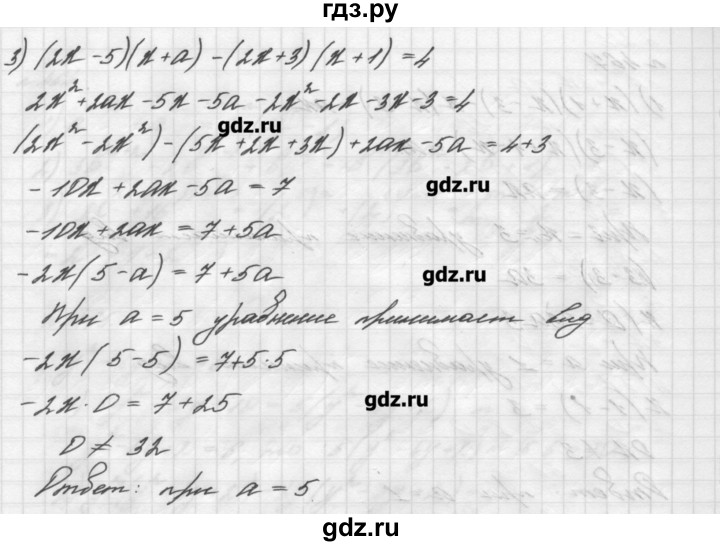 гдз.ру
3) (2x - 5)(x + a) - (2x + 3)(x + 1) = 4
2x² + 2ax - 5x - 5a - 2x² - 2x - 3x - 3 = 4
gdz.ru
(2x² - 2x²) - (5x + 2x + 3x) + 2ax - 5a = 4 + 3
- 10x + 2ax - 5a = 7
gdz.ru
- 10x + 2ax = 7 + 5a
- 2x(5 - a) = 7 + 5a
gdz.ru
При a = 5 уравнение принимает вид
- 2x(5 - 5) = 7 + 5·5
- 2x · 0 = 7 + 25
gdz.ru
0 ≠ 32
Ответ: при a = 5.
gdz.ru